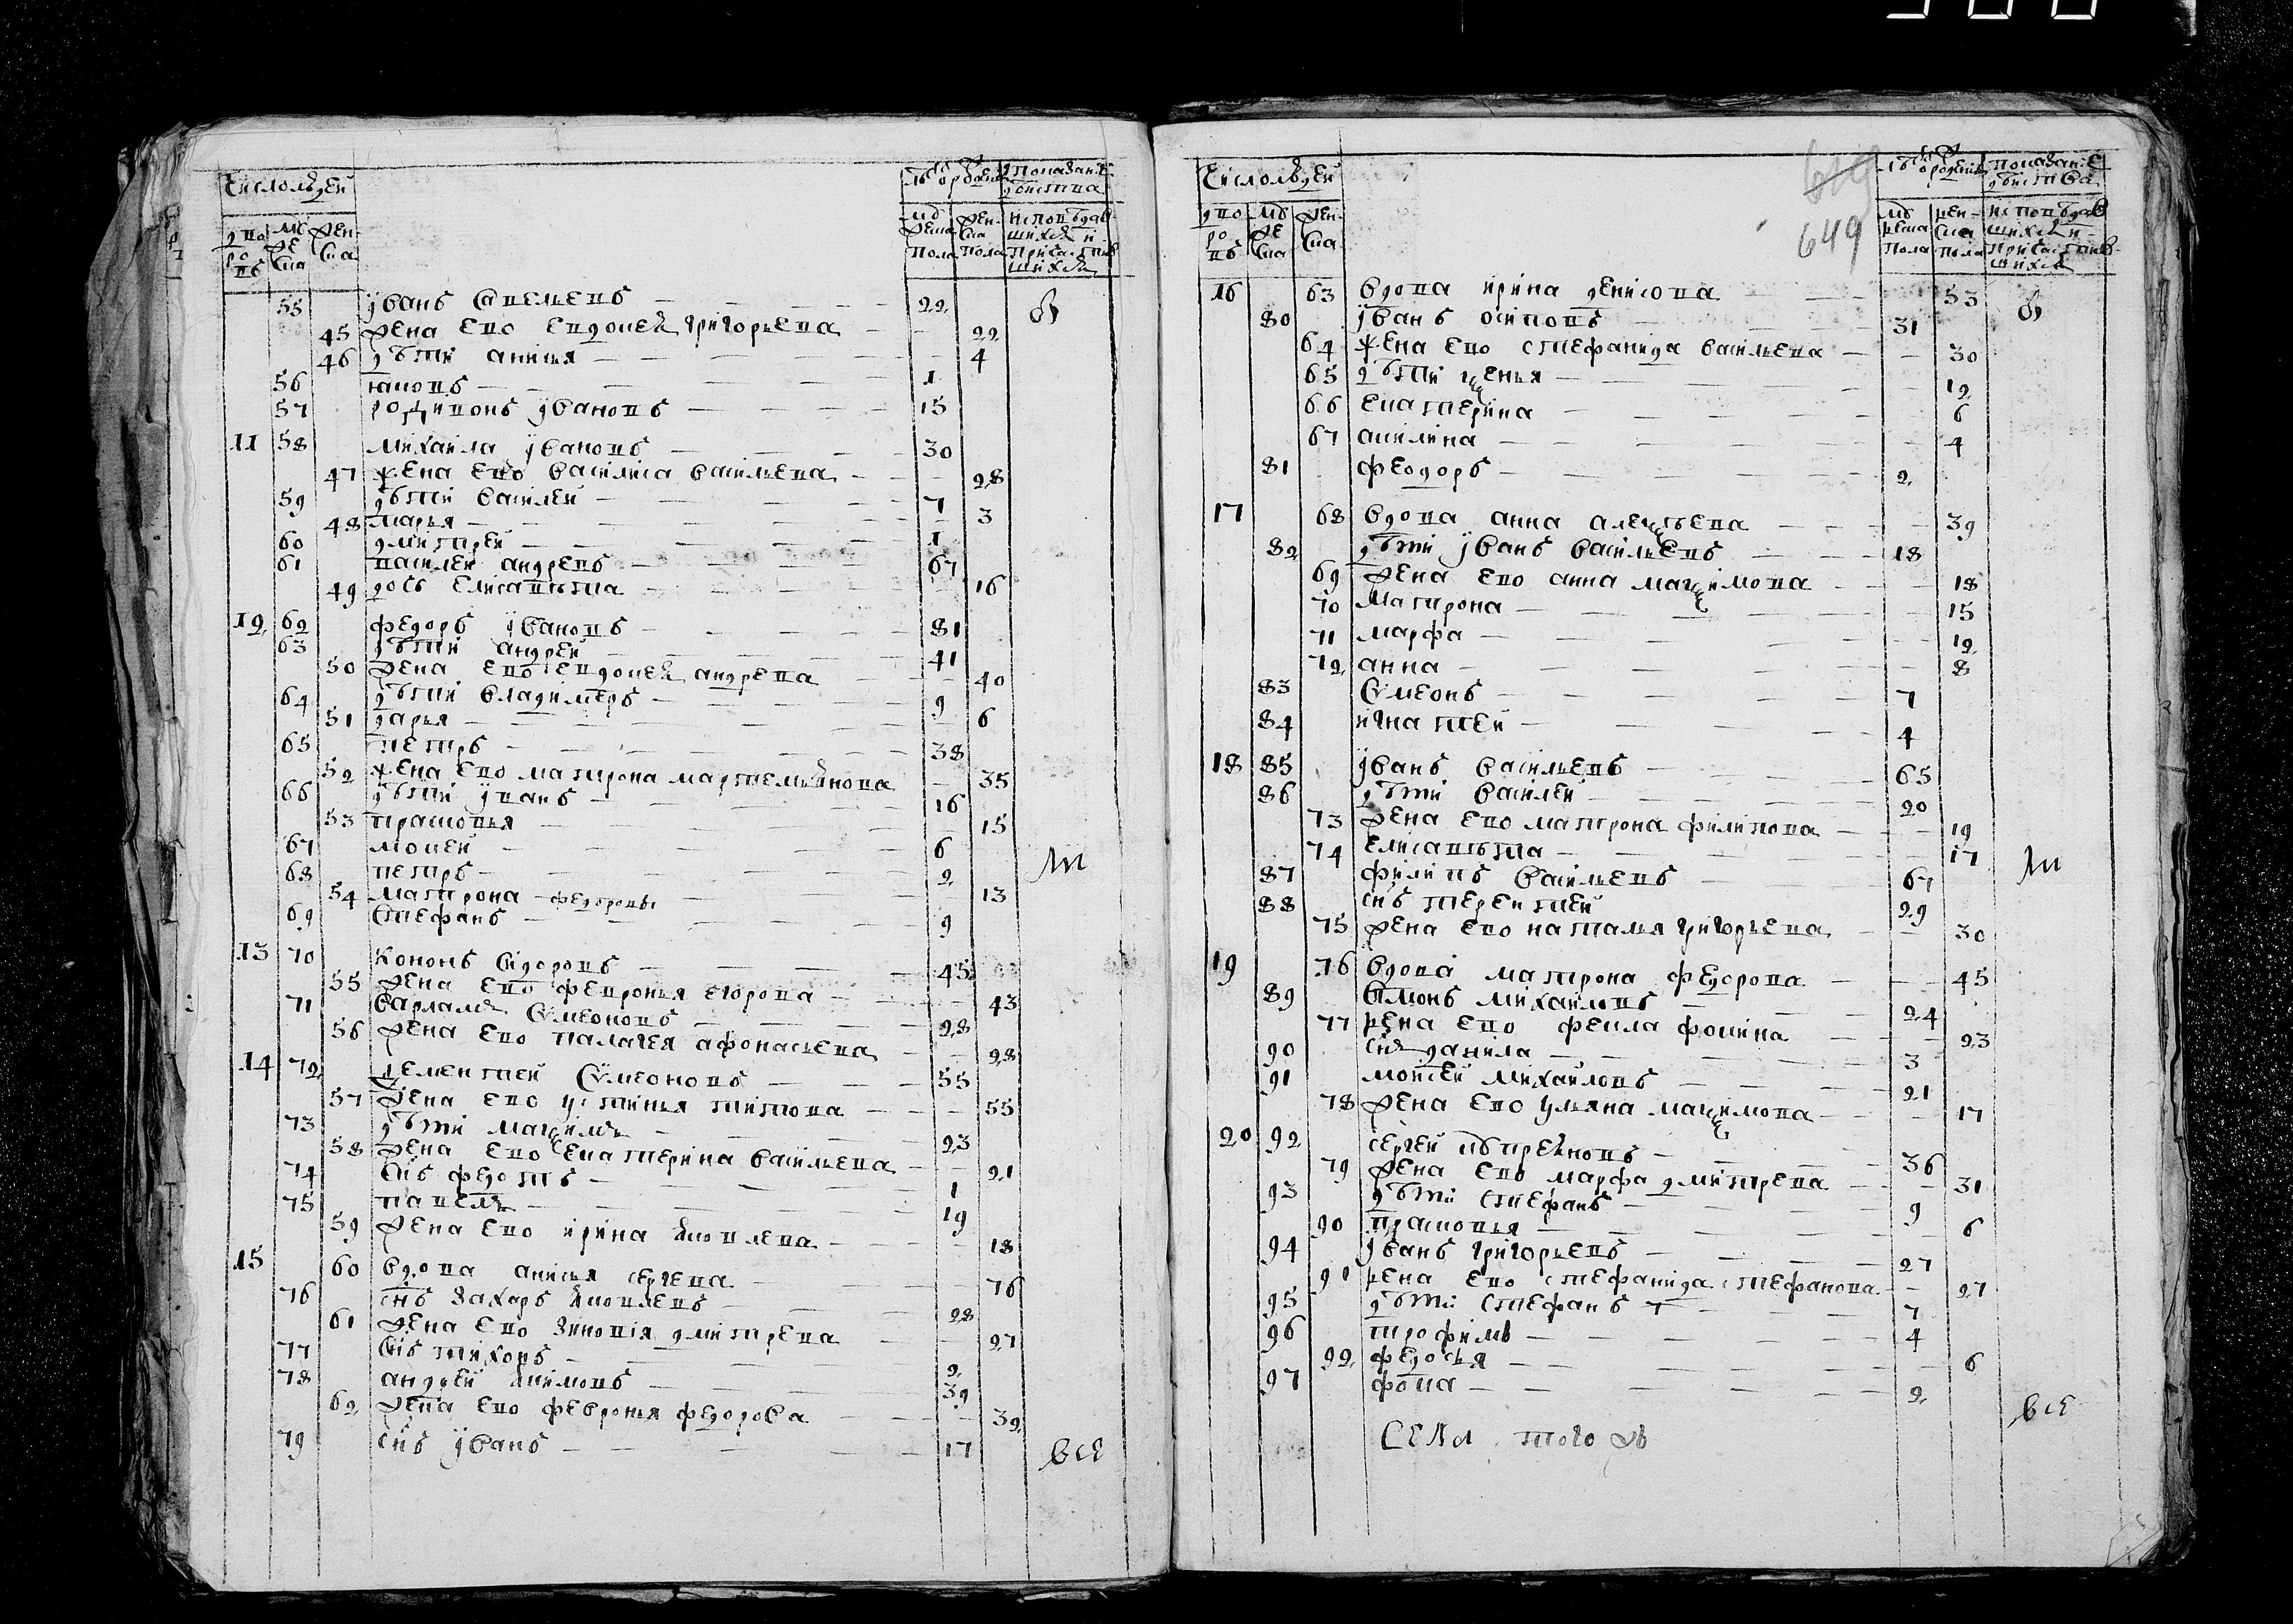 Число людей
Лѣта от рождения
Показание действа
дворовъ
мужеска
женска
мужеска пола
женска пола
исповѣдавшихся и причастившихся
55 Иванъ Савельевъ 22
45 жена ево Евдокея Григорьева 22
46 дѣти Анисья 4
56 Яковъ 1
57 Родивонъ Ивановъ 15
11 58 Михайла Ивановъ 30
47 жена ево Василиса Васильева 28
59 дѣти Василей 7
48 Марья 3
60 Дмитрей 1
61 Василей Андревъ 67
49 дочь Елисавѣта 16
12 62 Федоръ Ивановъ 81
63 дѣти Андрей 41
50 жена ево Евдокея Андрева 40
64 дѣти Владимеръ 9
51 Дарья 6
65 Петръ 38
52 жена ево Матрона Мартемьянова 35
66 дѣти Иванъ 16
53 Прасковья 15
67 Мокей 6
68 Петръ 2
54 Матрона Федоровы 13
69 Стефанъ 9
13 70 Кононъ Сидоровъ 45
55 жена ево Февронья Егорова 43
71 Варламъ Симеоновъ 28
56 жена ево Палагея Афонасьева 28
14 72 Дементей Симеоновъ 55
57 жена ево Устинья Титова 55
73 дѣти Маѯимъ 23
58 жена ево Екатерина Васильева 21
74 снъ Федотъ 1
75 Павелъ 19
59 жена ево Ирина Яковлева 18
15 60 вдова Анисья Сергева 76
76 снъ Захаръ Яковлевъ 28
61 жена ево Зиновія Дмитрева 27
77 снъ Тихонъ 2
78 Андрей Якимовъ 39
62 жена ево Февронья Федорова 39
79 снъ Иванъ 17
всѣ
649
Число людей
Лѣта от рождения
Показание действа
дворовъ
мужеска
женска
мужеска пола
женска пола
исповѣдавшихся и причастившихся
16 63 вдова Ирина Денисова 53
80 Иванъ Осиповъ 31
64 жена ево Стефанида Васильева 30
65 дѣти Ѯенья 12
66 Екатерина 6
67 Акилина 4
81 Феодоръ 2
17 68 вдова Анна Алеѯѣева 39
82 дѣти Иванъ Васильевъ 18
69 жена ево Анна Маѯимова 18
70 Матрона 15
71 Марфа 12
72 Анна 8
83 Симеонъ 7
84 Игнатей 4
18 85 Иванъ Васильевъ 65
86 дѣти Василей 20
73 жена ево Матрона Филипова 19
74 Елисавѣта 17
87 Филипъ Васильевъ 67
88 снъ Терентей 29
75 жена ево Наталья Григорьева 30
19 76 вдова Матрона Федорова 45
89 Симонъ Михайловъ 24
77 жена ево Фекла Фомина 23
90 снъ Данила 3
91 Мойсей Михайловъ 21
78 жена ево Ульяна Маѯимова 17
20 92 Сергей 36
79 жена ево Марфа Дмитрева 31
93 дѣти Стефанъ 9
90 Прасковья 6
94 Иванъ Григорьевъ 27
91 жена ево Стефанида Стефанова 27
95 дѣти Стефанъ 7
96 Трофимъ 4
92 Федосья 6
97 Фома 2
всѣ
Села того жъ